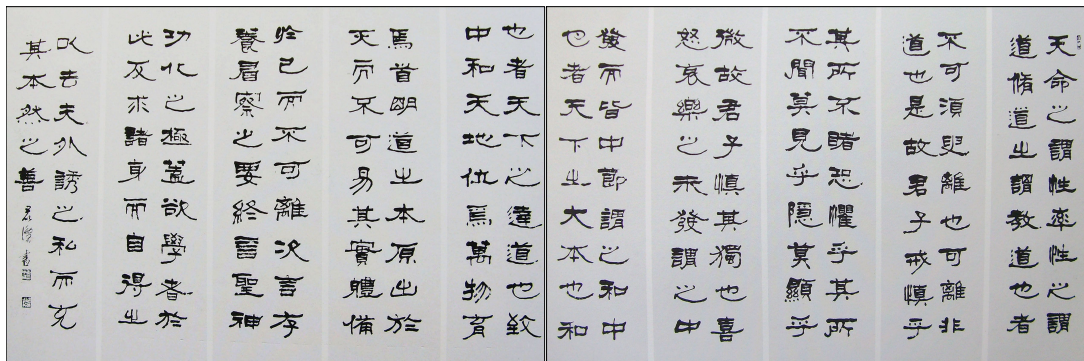 天命之謂性率性之謂
道脩道之謂教道也者
不可須臾離也可離非
道也是故君子戒慎乎
其所不睹恐懼乎其所
不聞莫見乎隱莫顯乎
微故君子慎其獨也喜
怒哀樂之未發謂之中
發而皆中節謂之和中
也者天下之大本也和
也者天下之達道也致
中和天地位焉萬物育
焉首明道之本原出於
天而不可易其實體備
於己而不可離次言存
養省察之要終言聖神
功化之極蓋欲學者於
此反求諸身而自得之
以去夫外誘之私而充
其本然之善